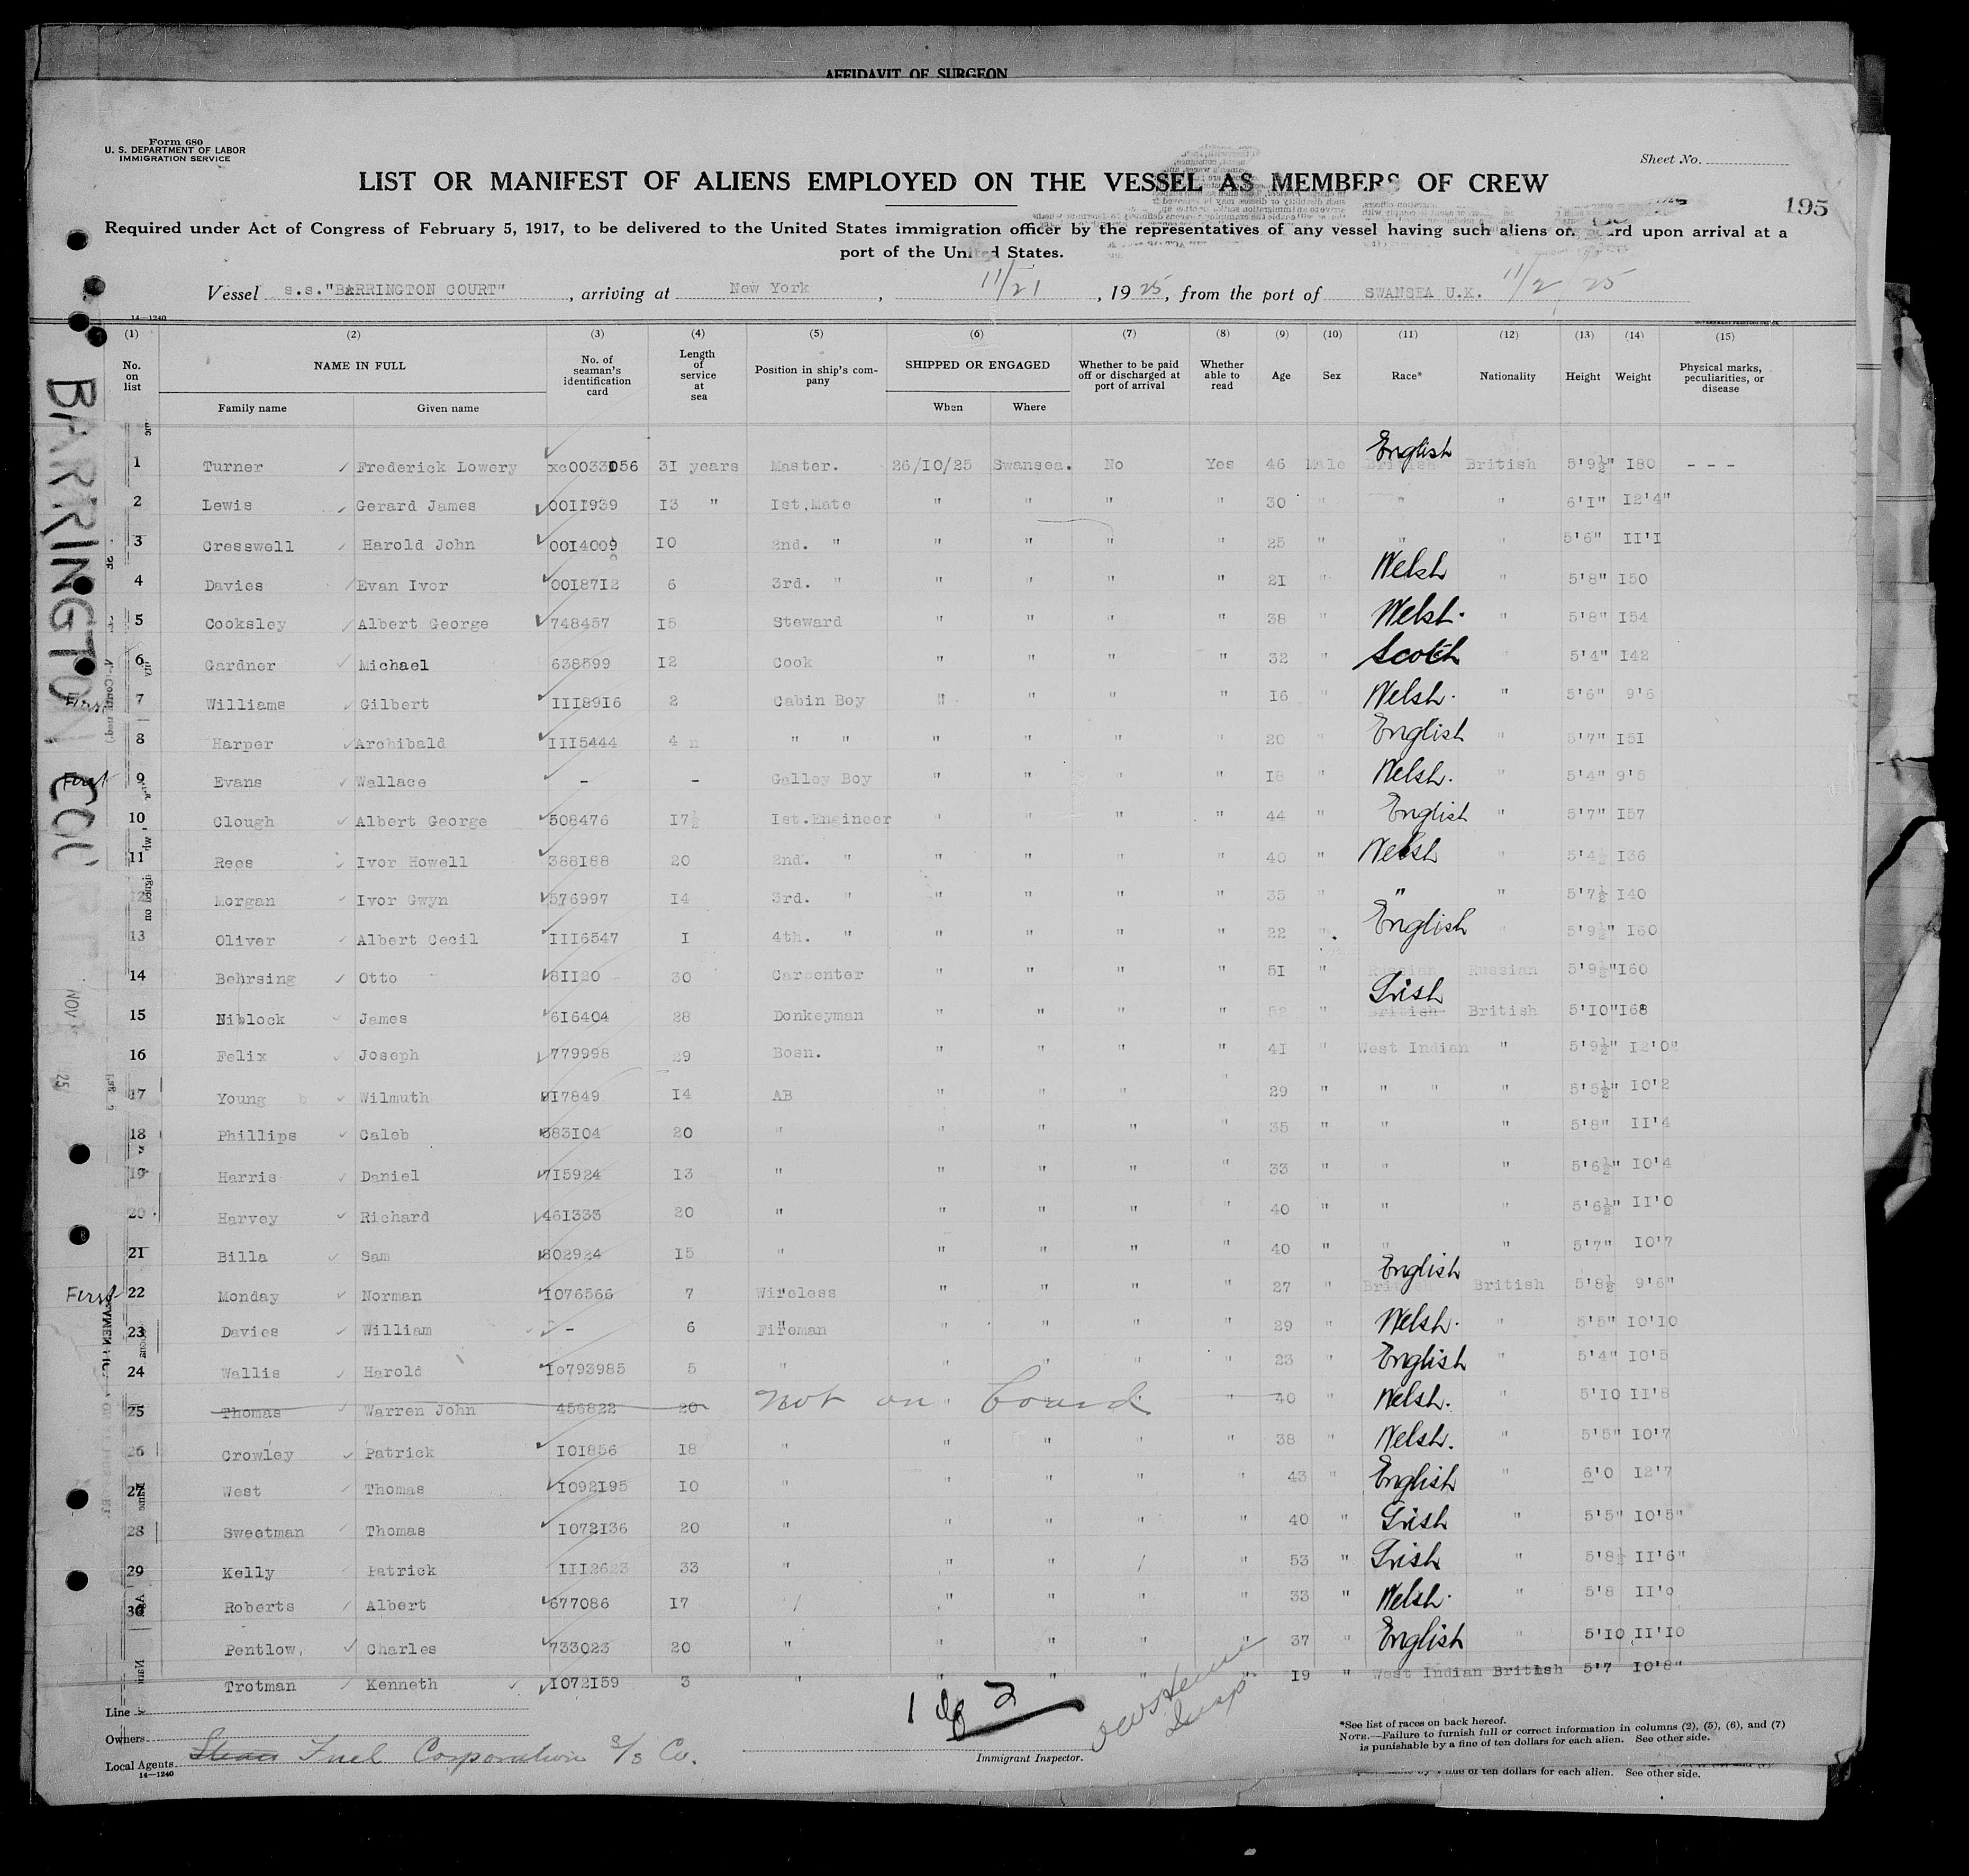 AFFIDAVIT OF SURGEON
Form 680
U. S. DEPARTMENT OF LABOR
IMMIGRATION SERVICE
Sheet No.
LIST OR MANIFEST OF ALIENS EMPLOYED ON THE VESSEL AS MEMBERS OF CREW
195
Required under Act of Congress of February 5, 1917, to be delivered to the United States immigration officer by the representatives of any vessel having such aliens on board upon arrival at a
port of the United States.
Vessel s.s."BARRINGTON COURT", arriving at New York, 11/21, 1925, from the port of SWANSEA U.K. 11/2/25
14—1240
(1) (2) (3) (4) (5) (6) (7) (8) (9) (10) (11) (12) (13) (14) (15)
No. on list NAME IN FULL Family name Given name No. of seaman's identification card Length of service at sea Position in ship's company SHIPPED OR ENGAGED When Where Whether to be paid off or discharged at port of arrival Whether able to read Age Sex Race* Nationality Height Weight Physical marks, peculiarities, or disease
1 Turner Frederick Lowery xc0033056 31 years Master. 26/10/25 Swansea. No Yes 46 Male British English British 5'9½" 180 - - -
2 Lewis Gerard James 0011939 13 " Ist.Mate " " " " 30 " " " 6'1" 12'4"
3 Cresswell Harold John 0014009 10 2nd. " " " " " 25 " " " 5'6" 11'1
4 Davies Evan Ivor 0018712 6 3rd. " " " " " 21 " Welsh " 5'8" 150
5 Cooksley Albert George 748457 15 Steward " " " " 38 " Welsh. " 5'8" 154
6 Gardner Michael 638599 12 Cook " " " " 32 " Scotch " 5'4" 142
First 7 Williams Gilbert 1118916 2 Cabin Boy " " " " 16 " Welsh. " 5'6" 9'6
8 Harper Archibald 1115444 4 " " " " " " 20 " English " 5'7" 151
First 9 Evans Wallace - - Galley Boy " " " " 18 " Welsh. " 5'4" 9'5
10 Clough Albert George 508476 17½ Ist.Engineer " " " " 44 " English " 5'7" 157
11 Rees Ivor Howell 388188 20 2nd. " " " " " 40 " Welsh " 5'4½ 136
12 Morgan Ivor Gwyn 576997 14 3rd. " " " " " 35 " " " 5'7½ 140
13 Oliver Albert Cecil 1116547 1 4th. " " " " " 22 " English " 5'9½" 160
14 Behrsing Otto 81120 30 Carpenter " " " " 51 " Russian Russian 5'9½" 160
15 Niblock James 616404 28 Donkeyman " " " " 52 " British Irish British 5'10" 168
16 Felix Joseph 779998 29 Bosn. " " " " 41 " West Indian " 5'9½" 12'0"
17 Young Wilmuth 917849 14 AB " " " " 29 " " " " 5'5½" 10'2
18 Phillips Caleb 583104 20 " " " " " 35 " " " 5'8" 11'4
19 Harris Daniel 715924 13 " " " " " 33 " " " 5'6½" 10'4
20 Harvey Richard 461333 20 " " " " " 40 " " " 5'6½" 11'0
21 Billa Sam 802924 15 " " " " " 40 " " " 5'7" 10'7
First 22 Monday Norman 1076566 7 Wireless " " " " 27 " British English British 5'8½ 9'6"
23 Davies William - 6 Fireman " " " " 29 " Welsh. " 5'5" 10'10
24 Wallis Harold 10793985 5 " " " " " 23 " English " 5'4" 10'5
25 Thomas Warren John 456822 20 not on board " 40 " Welsh. " 5'10 11'8
26 Crowley Patrick 101856 18 " " " " " 38 " Welsh. " 5'5" 10'7
27 West Thomas 1092195 10 " " " " " 43 " English " 6'0 12'7
28 Sweetman Thomas 1072136 20 " " " " " 40 " Irish " 5'5" 10'5"
29 Kelly Patrick 1112623 33 " " " " 53 " Irish " 5'8½ 11'6"
30 Roberts Albert 677086 17 " " " " 33 " Welsh. " 5'8 11'0
Pentlow, Charles 733023 20 " " " " " 37 " English " 5'10 11'10
Trotman Kenneth 1072159 3 " " " " " 19 " West Indian British 5'7 10'8"
BARRINGTON COURT
NOV 25
Line
1 of 2
Owners
Local Agents Fuel Corporation S/S Co.
14—1240
Immigrant Inspector.
Insp
*See list of races on back hereof.
NOTE.—Failure to furnish full or correct information in columns (2), (5), (6), and (7)
is punishable by a fine of ten dollars for each alien. See other side.
fine of ten dollars for each alien. See other side.